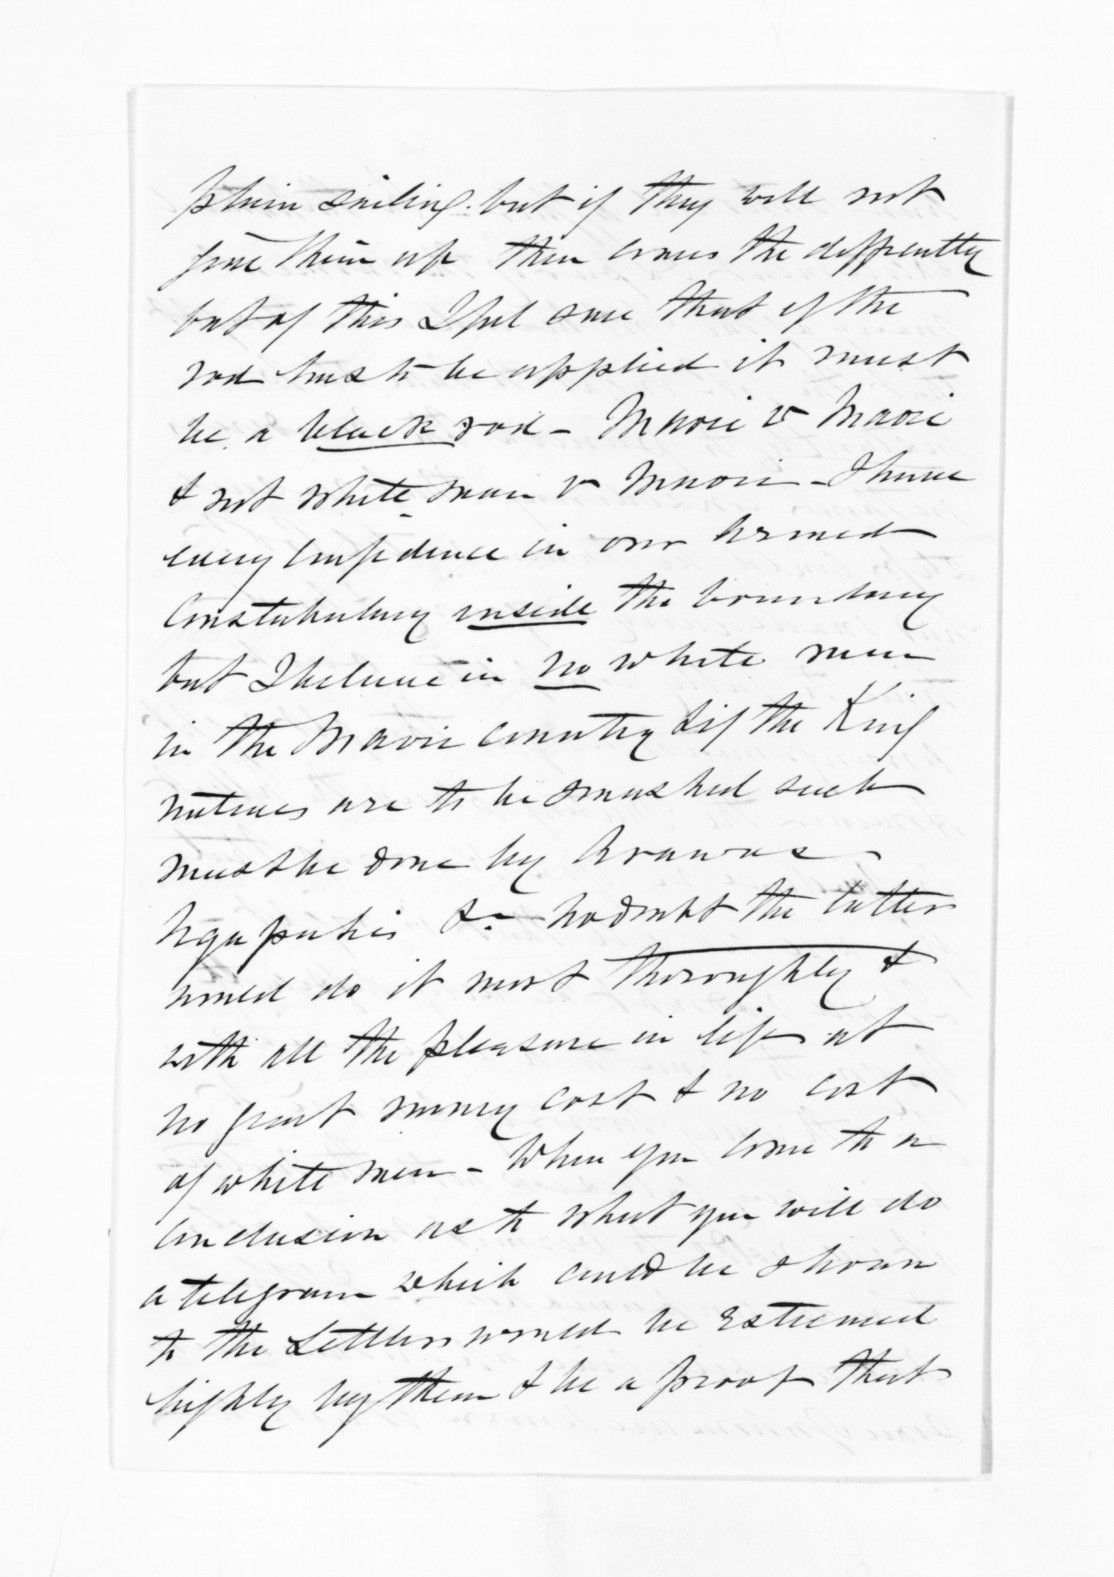 plain sailing. but if they will not
give them up then comes the difficulty
but of this I feel sure that if the
rod has to be applied it must
be a black rod - Maori v Maori
& not white man v Maori - I have
every confidence in our Armed
Constabulary inside the boundary
but I believe in no white men
in the Maori country & if the King
natives are to be smashed such
must be done by Arawas
Ngapuhis &c no doubt the latter
would do it most thoroughly &
with all the pleasure in life at
no great money cost & no cost
of white men - When you come to a
conclusion as to what you will do
a telegram which could be shown
to the Settlers would be esteemed
highly by them & be a proof that